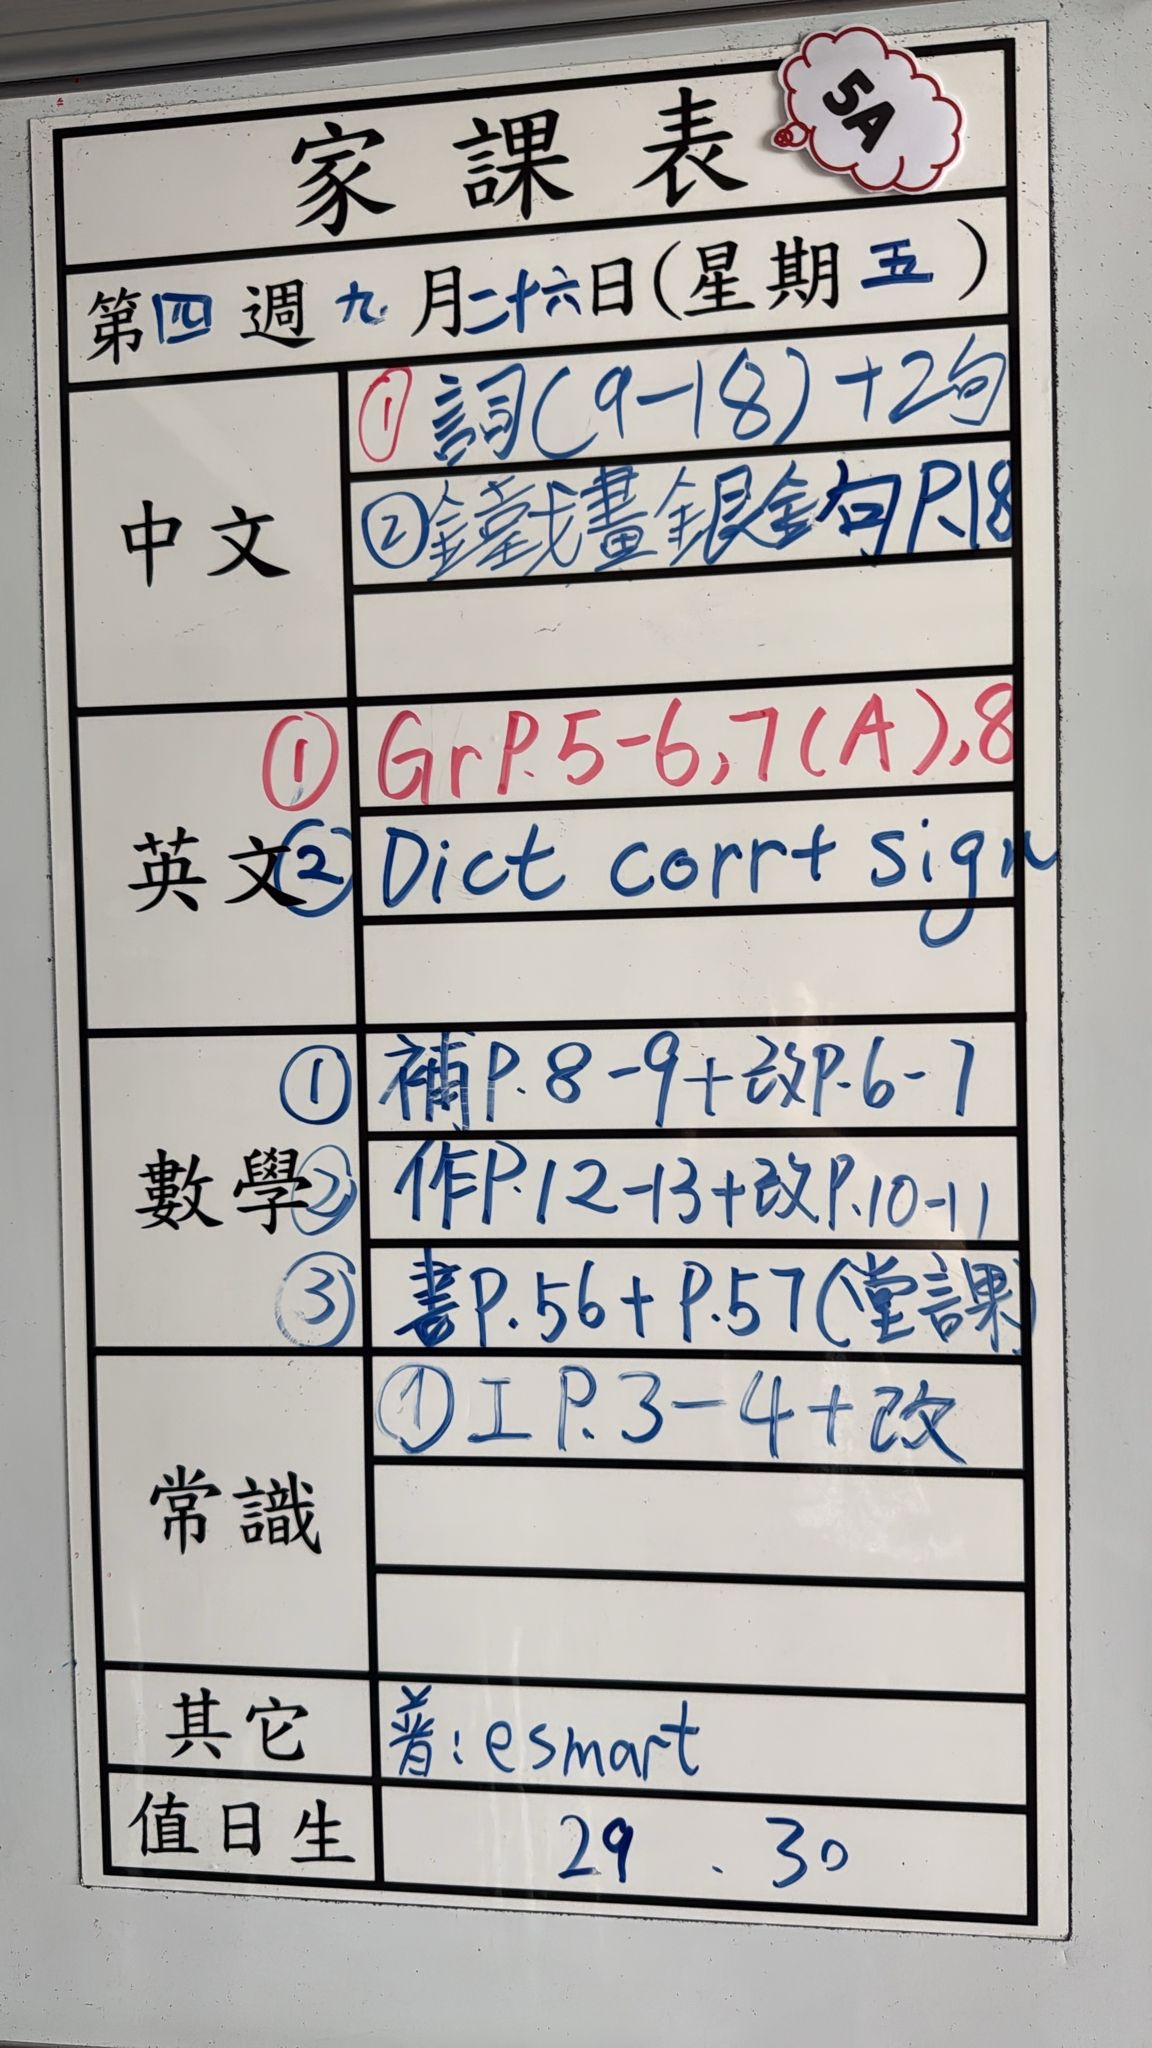 5A
家課表
第四週九月二十六日(星期五)
中文
① 詞(9-18)+2句
②鐵畫銀金句P.18
英文
① Gr P.5-6,7(A),8
② Dict corr+ sign
數學
① 補P.8-9+改P.6-7
② 作P.12-13+改P.10-11
③ 書P.56+P.57(堂課)
常識
①工P.3-4+改
其它
普:esmart
值日生
29、30